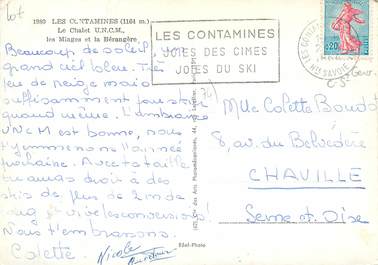 Lot
1980 LES CONTAMINES (1164 m.)
Le Chalet U.N.C.M.,
les Miages et la Bérangère
Beaucoup de soleil, un
grand ciel bleu. Très
peu de neige mais
suffisamment pour skier
quand même. L'ambiance
UNCM est bonne, nous
t'emmenons l'année
prochaine. Avec ta taille
tu auras droit à des
skis de plus de 2m de
vive les conversions!
Nous t'embrassons.
Colette. Nicole
LES CONTAMINES
JOIES DES CIMES
JOIES DU SKI
LES CONTAMINES
HTE SAVOIE
0,20
Mlle Colette Boudot
8, av. du Belvédère
CHAVILLE
Seine et Oise
Edel-Photo